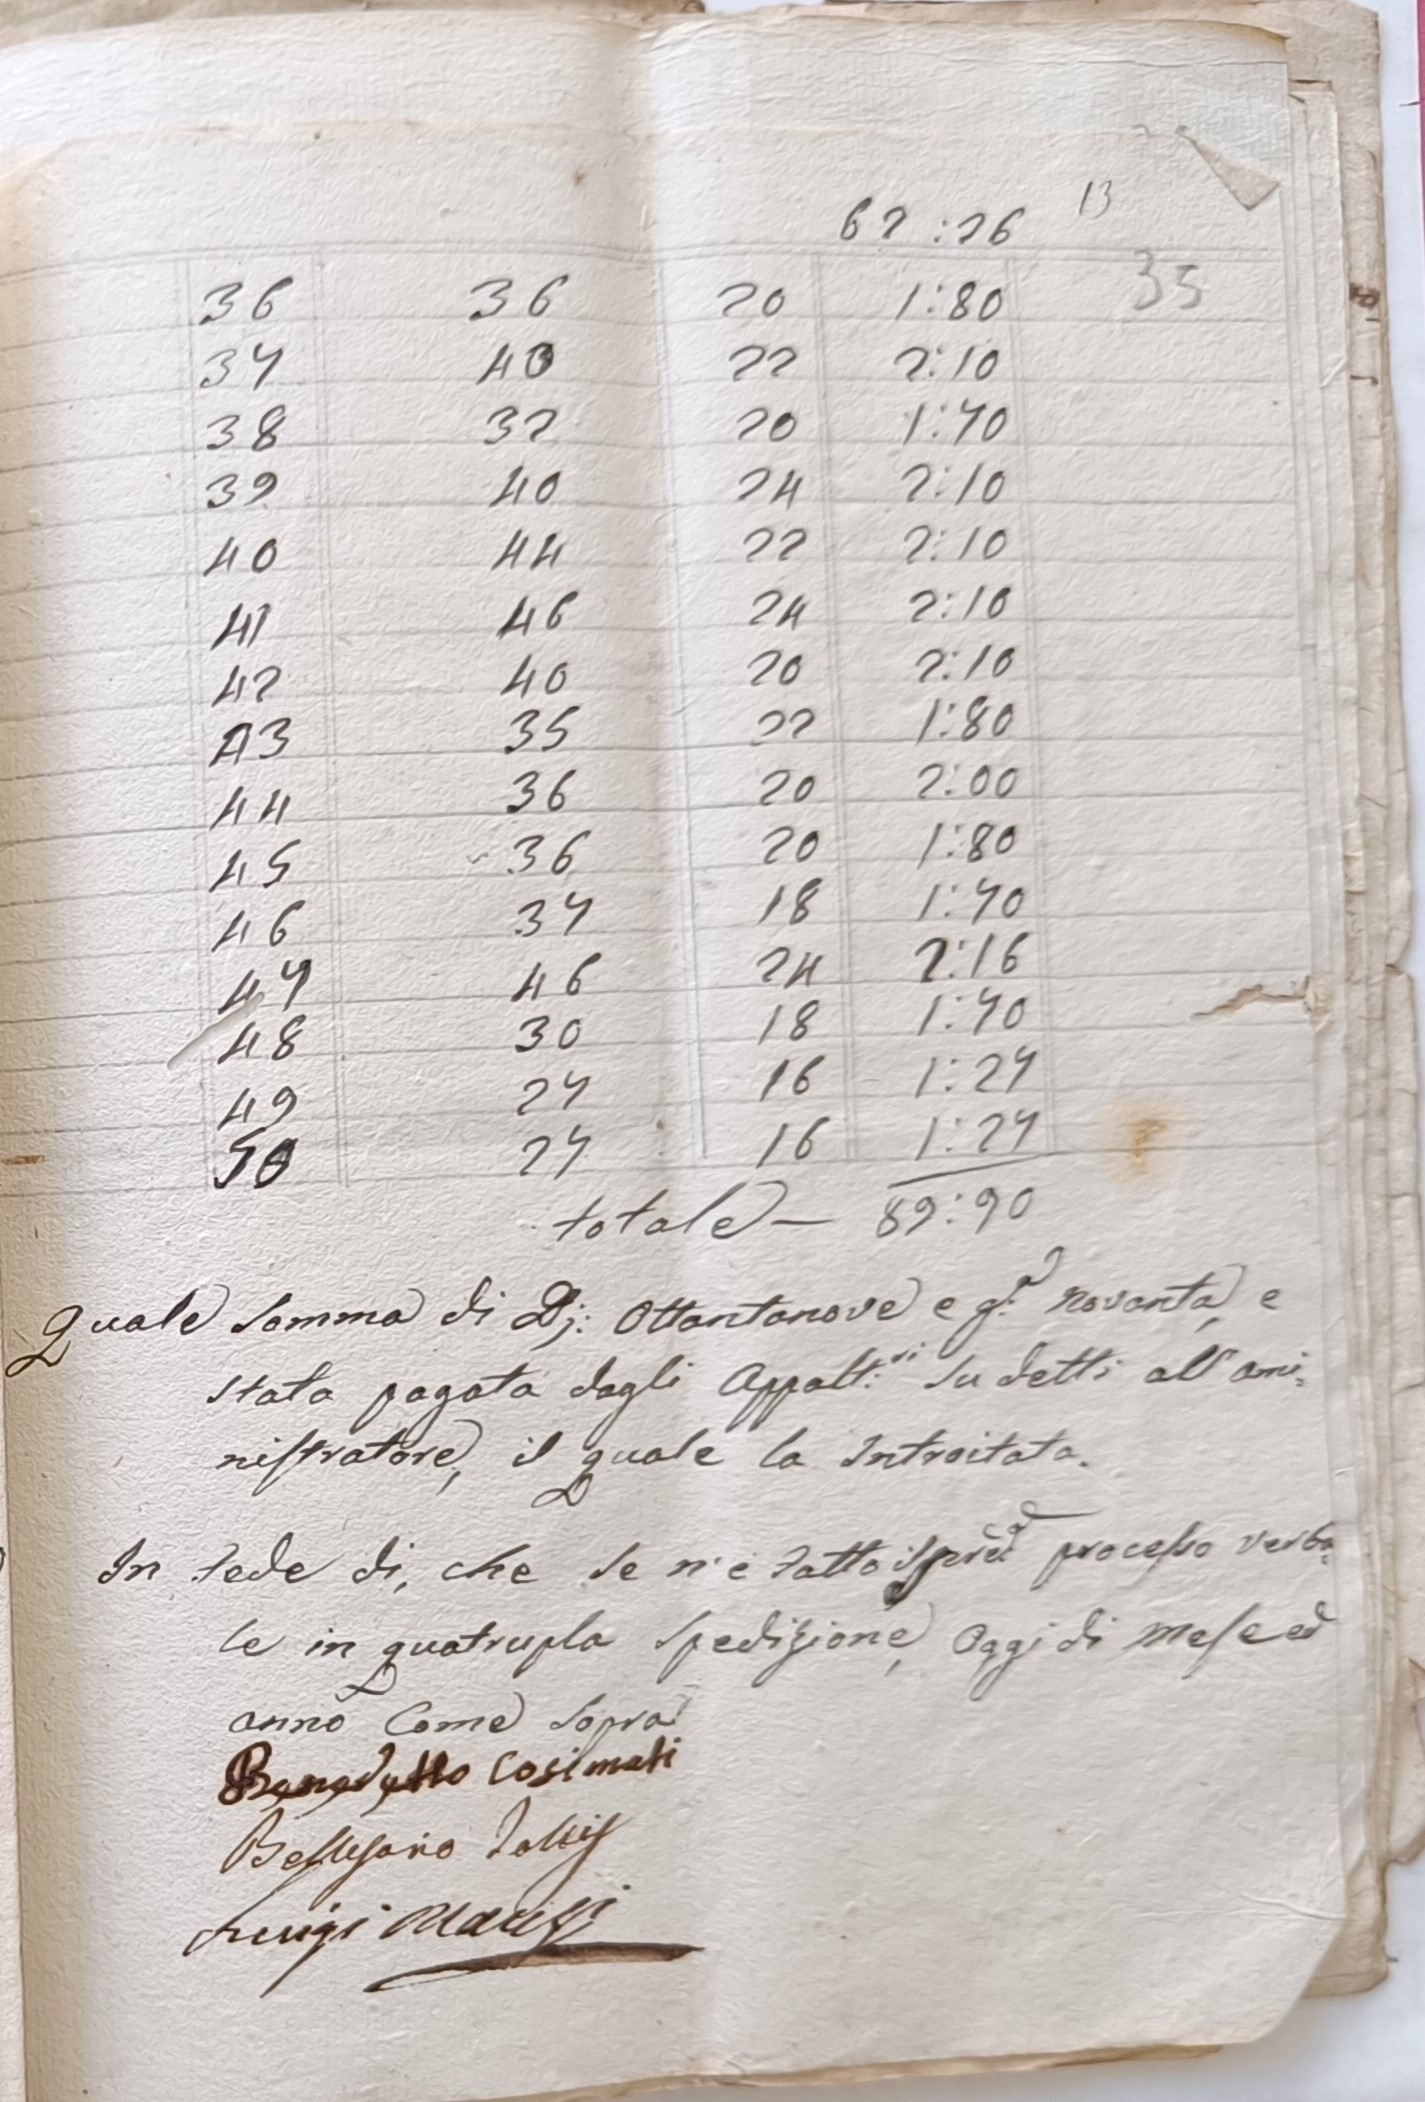 13
62:26
35
36 36 20 1:80
37 40 22 2:10
38 32 20 1:70
39 40 24 2:10
40 44 22 2:10
41 46 24 2:10
42 40 20 2:10
43 35 22 1:80
44 36 20 2:00
45 36 20 1:80
46 37 18 1:70
47 46 24 2:16
48 30 18 1:70
49 27 16 1:27
50 27 16 1:27
totale — 89:90
Quale Somma di D.i: Ottantanove e g.a: Novanta, e
stata pagata dagli Appalt:ri Sudetti all'ami=
nistratore, il quale la Introitata.
In fede di, che se n'è fatto il pred: processo verba
le in quatrupla spedizione, Oggi di mese ed
anno Come sopra
Benedetto Cosimati
Luigi